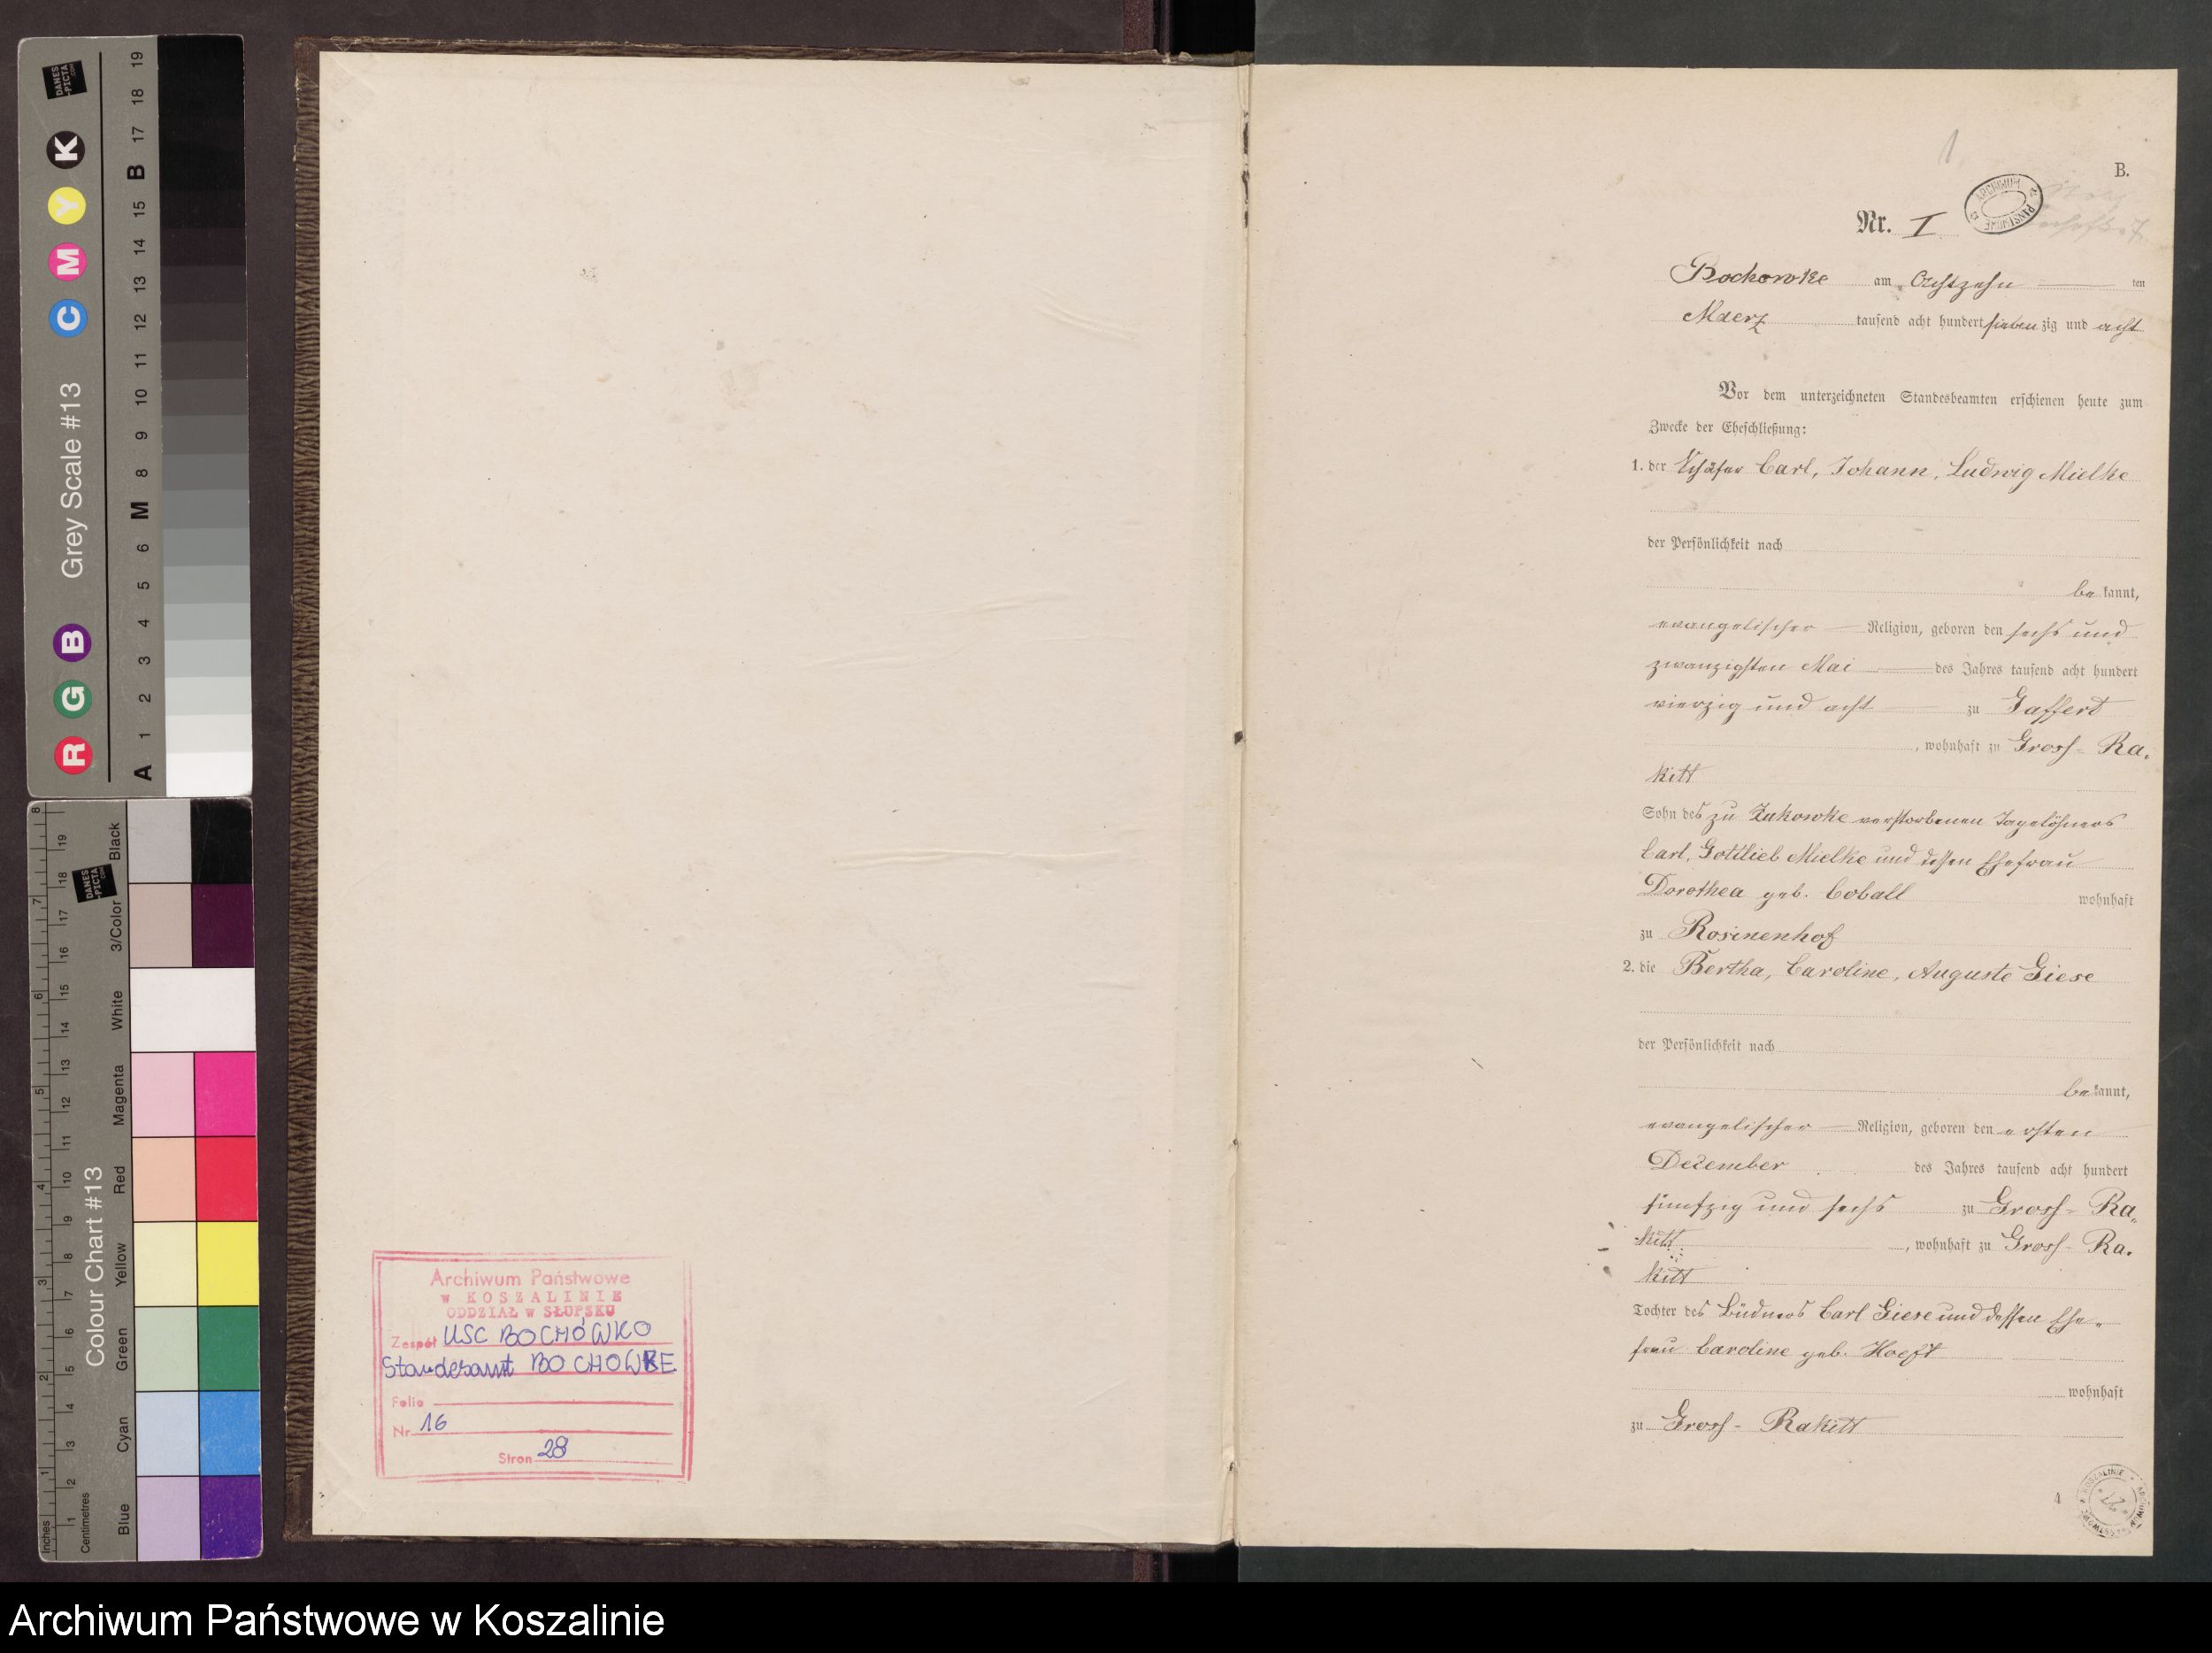 Archiwum Państwowe
w KOSZALINIE
ODDZIAŁ w SŁUPSKU
Zespół USC BOCHÓWKO
Standesamt BOCHOWKE
Folio
Nr 16
Stron 28
1
B.
Nr. I
ARCHIWUM PAŃSTWOWE
Bochowke am Achtzehn ten
Maerz tausend acht hundert siebenzig und acht
Vor dem unterzeichneten Standesbeamten erschienen heute zum
Zwecke der Eheschließung:
1. der Schäfer Carl, Johann, Ludwig Mielke
der Persönlichkeit nach
bekannt,
evangelischer Religion, geboren den sechs und
zwanzigsten Mai des Jahres tausend acht hundert
vierzig und acht zu Gaffert
, wohnhaft zu Gross-Ra-
kitt
Sohn des zu Zukowke verstorbenen Tagelöhners
Carl, Gottlieb Mielke und dessen Ehefrau
Dorothea geb. Coball wohnhaft
zu Rosinenhof
2. die Bertha, Caroline, Auguste Giese
der Persönlichkeit nach
bekannt,
evangelischer Religion, geboren den ersten
December des Jahres tausend acht hundert
fünfzig und sechs zu Gross-Ra-
kitt, wohnhaft zu Gross-Ra-
kitt
Tochter des Büdners Carl Giese und dessen Ehe-
frau Caroline geb. Hoeft
wohnhaft
zu Gross-Rakitt
4
DANES
-PICTA
.COM
Grey Scale #13
R G B C M Y K
A 1 2 3 4 5 6 M 8 9 10 11 12 13 14 15 B 17 18 19
Colour Chart #13
Blue Cyan Green Yellow Red Magenta White 3/Color Black
Inches 1 2 3 4 5 6 7 8
Centimetres 1 2 3 4 5 6 7 8 9 10 11 12 13 14 15 16 17 18 19
Archiwum Państwowe w Koszalinie